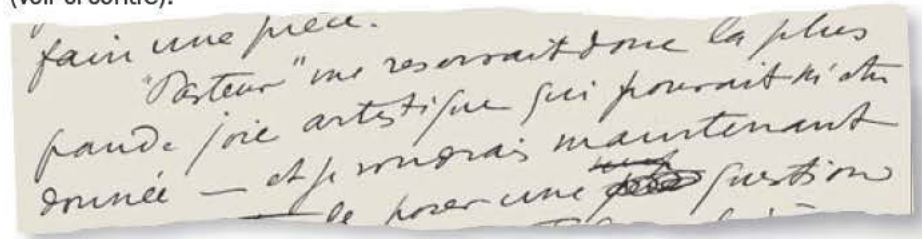 (voir ci-contre).
faire une pièce.
"Pasteur" me réservait donc la plus
grande joie artistique qui pouvait m'être
donnée — et je voudrais maintenant
poser une question